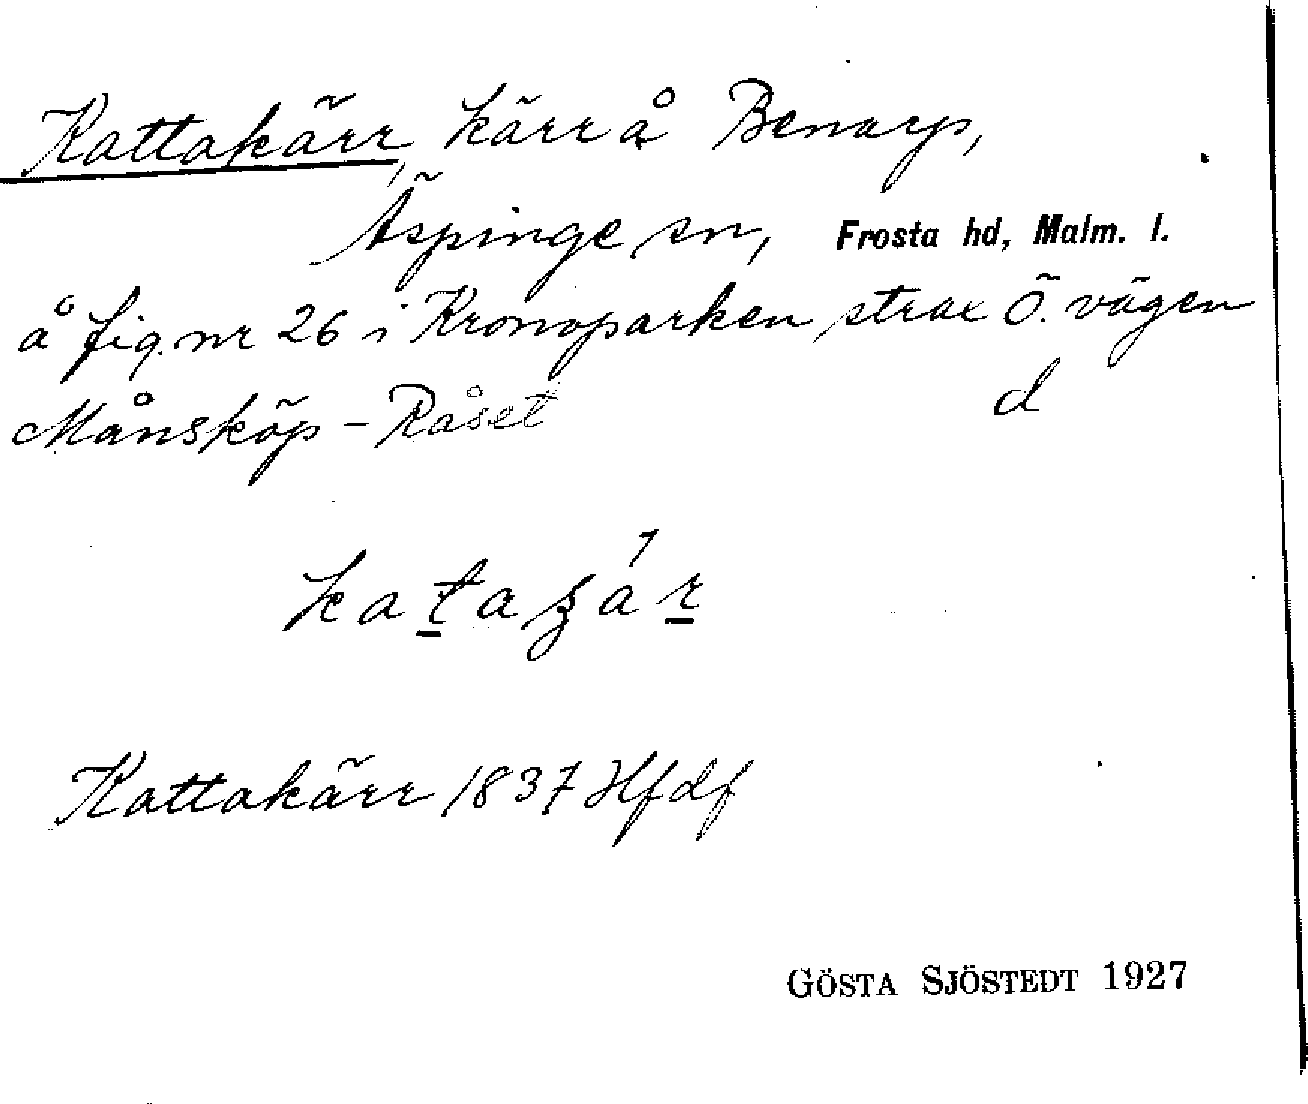 Kattakärr, kärr å Benarp,
Äspinge sn, Frosta hd, Malm. l.
å fig. nr 26 i Kronoparken strax Ö. vägen
Månsköp - Råset d
kataʒár
Kattakärr 1837 Hfdf
GÖSTA SJÖSTEDT 1927